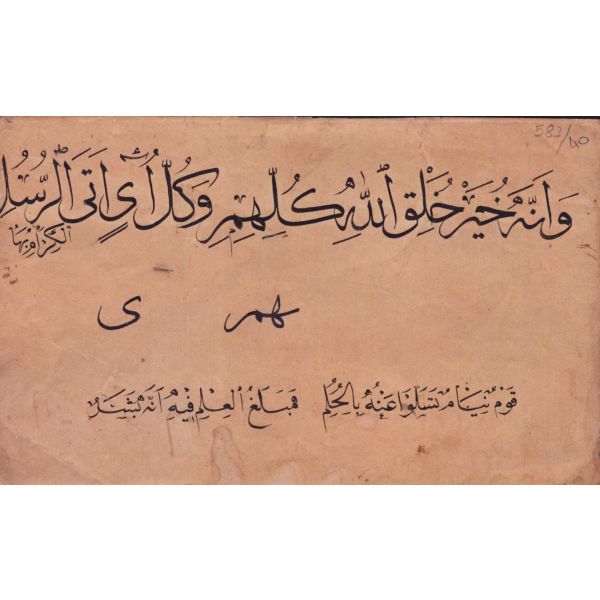 583/40
وَاَنَّهُ خَيْرُ خَلْقِ اللّٰهِ كُلِّهِمِ وَكُلُّ اٰيٍ اَتَى الرُّسُلُ
الْكِرَامُ بِهَا
همر ى
قَوْمٌ نِيَامٌ تَسَلَّوْا عَنْهُ بِالْحُلُمِ فَمَبْلَغُ الْعِلْمِ فِيهِ اَنَّهُ بَشَرٌ